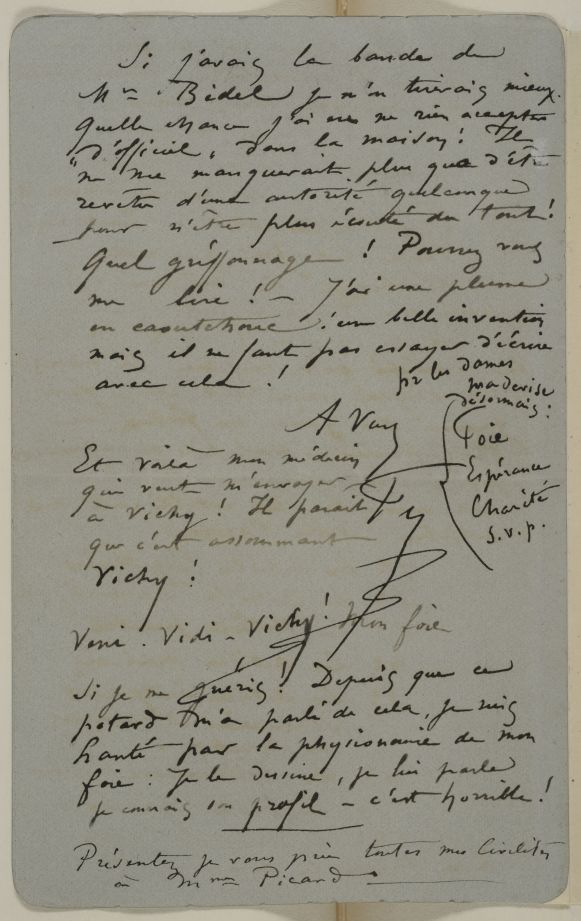 Si j'avais la bande de
Mme Bidel je m'en tirerais mieux.
Quelle chance j'ai eue ne rien accepter
"d'officiel" dans la maison! Il
ne me manquerait plus que d'être
revêtu d'une autorité quelconque
pour n'être plus écouté du tout!
Quel griffonnage! Pourrez vous
me lire! – J'ai une plume
en caoutchouc! une belle invention
mais il ne faut pas essayer d'écrire
avec cela!
pr les dames
ma devise
désormais:
Foie
Espérance
Charité
S.v.p.
A Vous
Et voilà mon médecin
qui veut m'envoyer
à Vichy! Il paraît
que c'est assommant
Vichy!
Veni - Vidi - Vichy! Mon foie
Si je me guéris! Depuis que ce
potard m'a parlé de cela, je suis
hanté par la physionomie de mon
foie: Je le dessine, je lui parle
je connais son profil – c'est horrible!
Présentez je vous prie toutes mes civilités
à Mme Picard